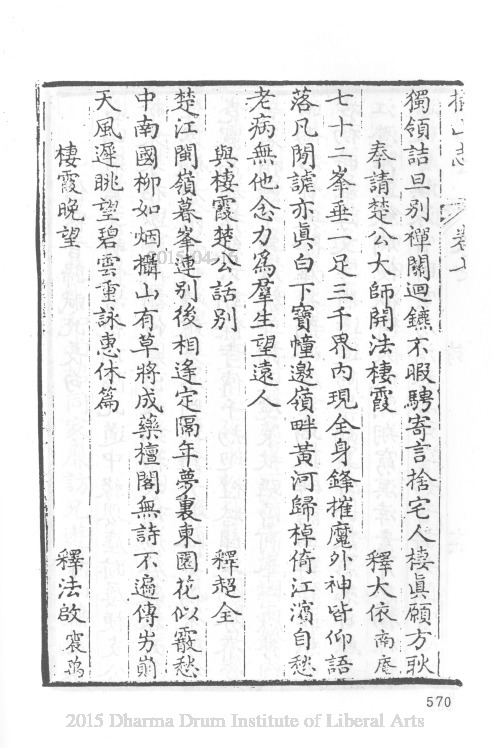 攝山志 卷七
獨領詰旦別禪關迴鑣不暇騁寄言捨宅人棲眞願方耿
奉請楚公大師開法棲霞 釋大依南庵
七十二峯垂一足三千界內現全身鋒摧魔外神皆仰語
落凡閒謔亦眞白下寶幢邀嶺畔黃河歸棹倚江濱自愁
老病無他念力爲羣生望遠人
與棲霞楚公話別 釋超全
楚江閩嶺暮峯連別後相逢定隔年夢裏東園花似霰愁
中南國柳如烟攝山有草將成藥檀閣無詩不遍傳芳
天風遲眺望碧雲重詠惠休篇
棲霞晚望 釋法啟
570
2015 Dharma Drum Institute of Liberal Arts